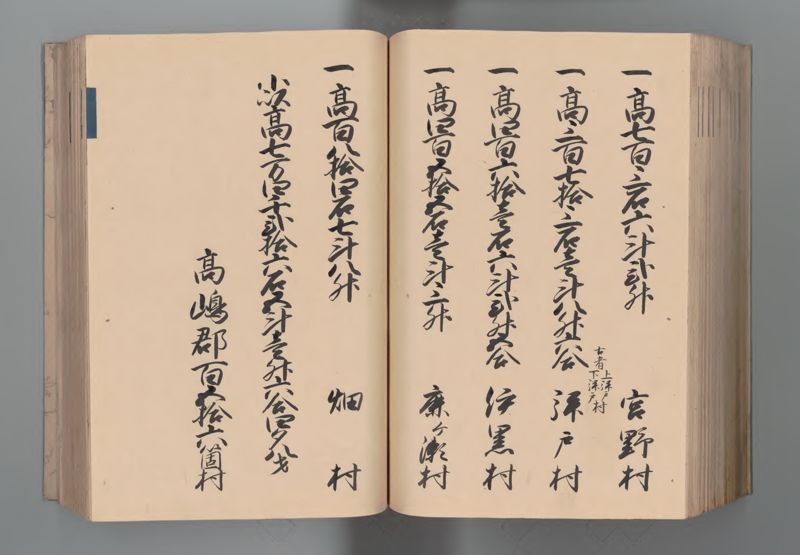 一高七百三石六斗弐升 宮野村
一高三百七拾三石壱斗八升六合 拝戸村
古者上拝戸村
下拝戸村
一高四百六拾壱石六斗弐升五合 伊黒村
一高四百五拾五石壱斗三升 鹿ヶ瀬村
一高百八拾四石七斗八升 畑村
小以高七万四千弐拾六石五斗壱升六合四夕八才
高嶋郡百五拾六箇村